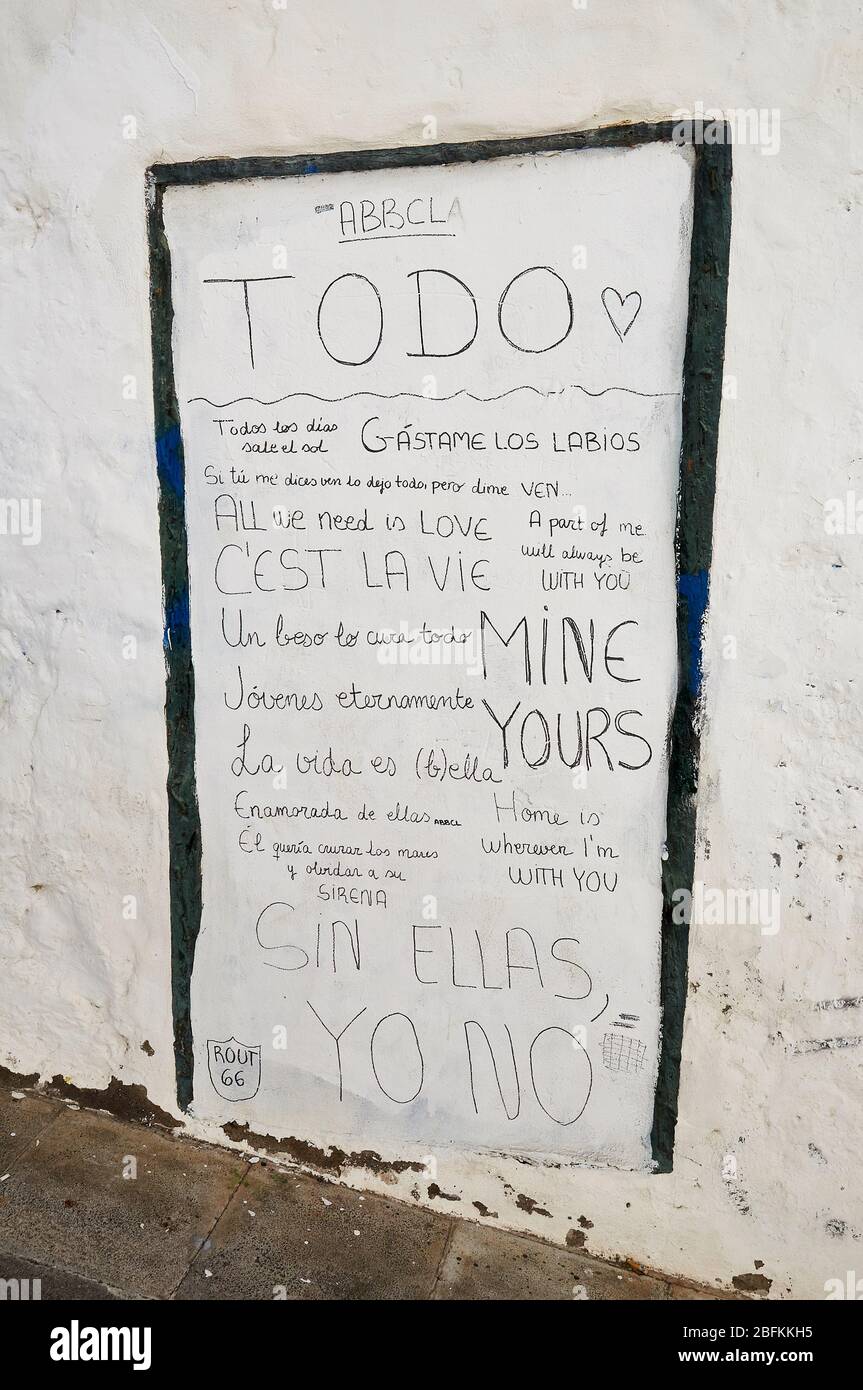 ABBCLA
TODO
Todos los días
sale el sol
GÁSTAME LOS LABIOS
Si tú me dices ven lo dejo todo, pero dime VEN...
ALL we need is LOVE
A part of me
will always be
WITH YOU
C'EST LA VIE
Un beso lo cura todo
MINE
YOURS
Jóvenes eternamente
La vida es (b)ella
Enamorada de ellas ABBCL
Home is
wherever I'm
WITH YOU
Él quería cruzar los mares
y olvidar a su
SIRENA
SIN ELLAS,
YO NO
ROUT
66
alamy
Image ID: 2BFKKH5
www.alamy.com